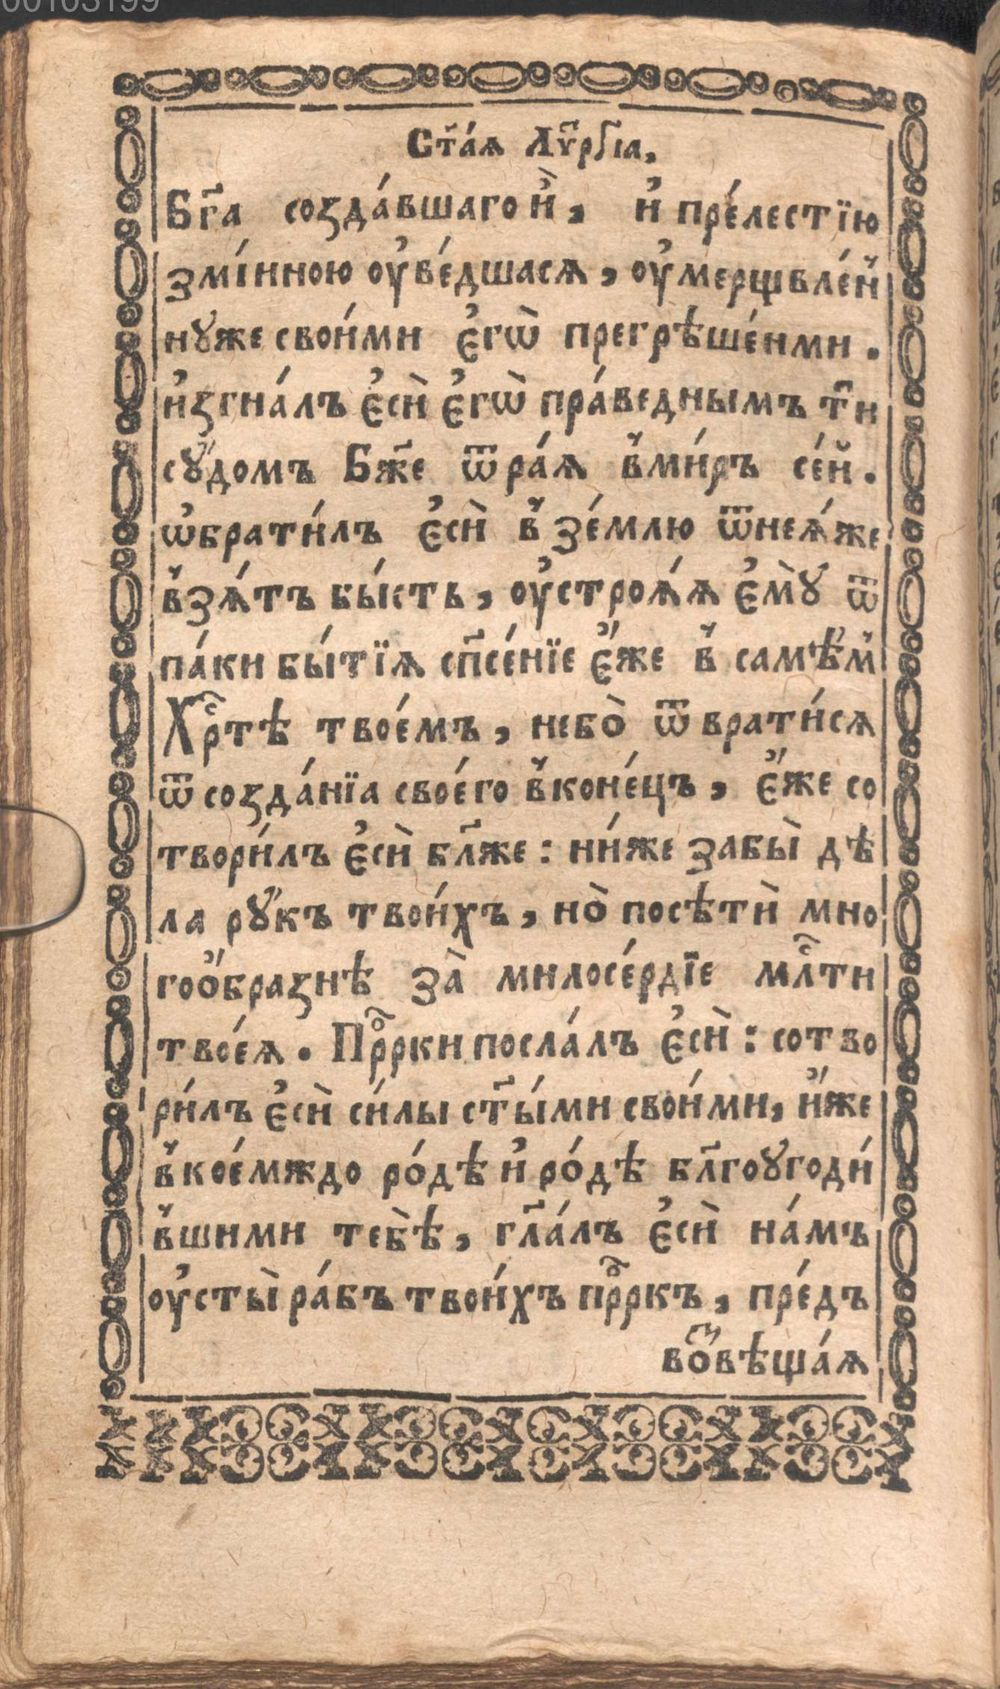 00103199
Ст҃а́ѧ Лѵ҃рг҇їа,
Бг҃а созда́вшаго и҆̀, и҆ пре́лестїю
змі́нною оу҆ве́дшасѧ, оу҆мерщвле́н̾
нꙋже свои́ми є҆гѡ̀ прегрѣше́ими.
и҆згна́лъ є҆сѝ є҆гѡ̀ пра́веднымъ тѝи
сꙋдомъ Бж҃е ѿра́ѧ в̾ми́ръ се́й.
ѡ҆брати́лъ є҆сѝ в̾ зе́млю ѿнеѧ́же
в̾зѧ́тъ бы́сть, оу҆строѧ́ѧ є҆мꙋ̀ ѿ
па́ки бы́тїѧ сп҃се́нїе є҆́же в̾ само́мъ
Хрⷭ҇тѣ твое́мъ, небо̀ ѿврати́сѧ
ѿ созда́нїа своего́ в̾коне́цъ, є҆́же со
твори́лъ є҆сѝ бл҃же: ни́же забы̀ дѣ
ла рꙋкъ твои́хъ, но̀ посѣтѝ мно
гоо́бразнѣ за̀ милосе́рдїе млⷭ҇ти
твоеѧ́. Прⷪ҇рки посла́лъ є҆сѝ: сотво
ри́лъ є҆сѝ си́лы ст҃ы́ми свои́ми, и҆́же
в̾кое́мждо ро́дѣ и҆ ро́дѣ бл҃гоꙋгоди́
в̾шими тебѣ̀, гл҃а́лъ є҆сѝ на́мъ
оу҆сты̀ ра́бъ твои́хъ прⷪ҇ркъ, пре́дъ
воⷥвѣща́ѧ